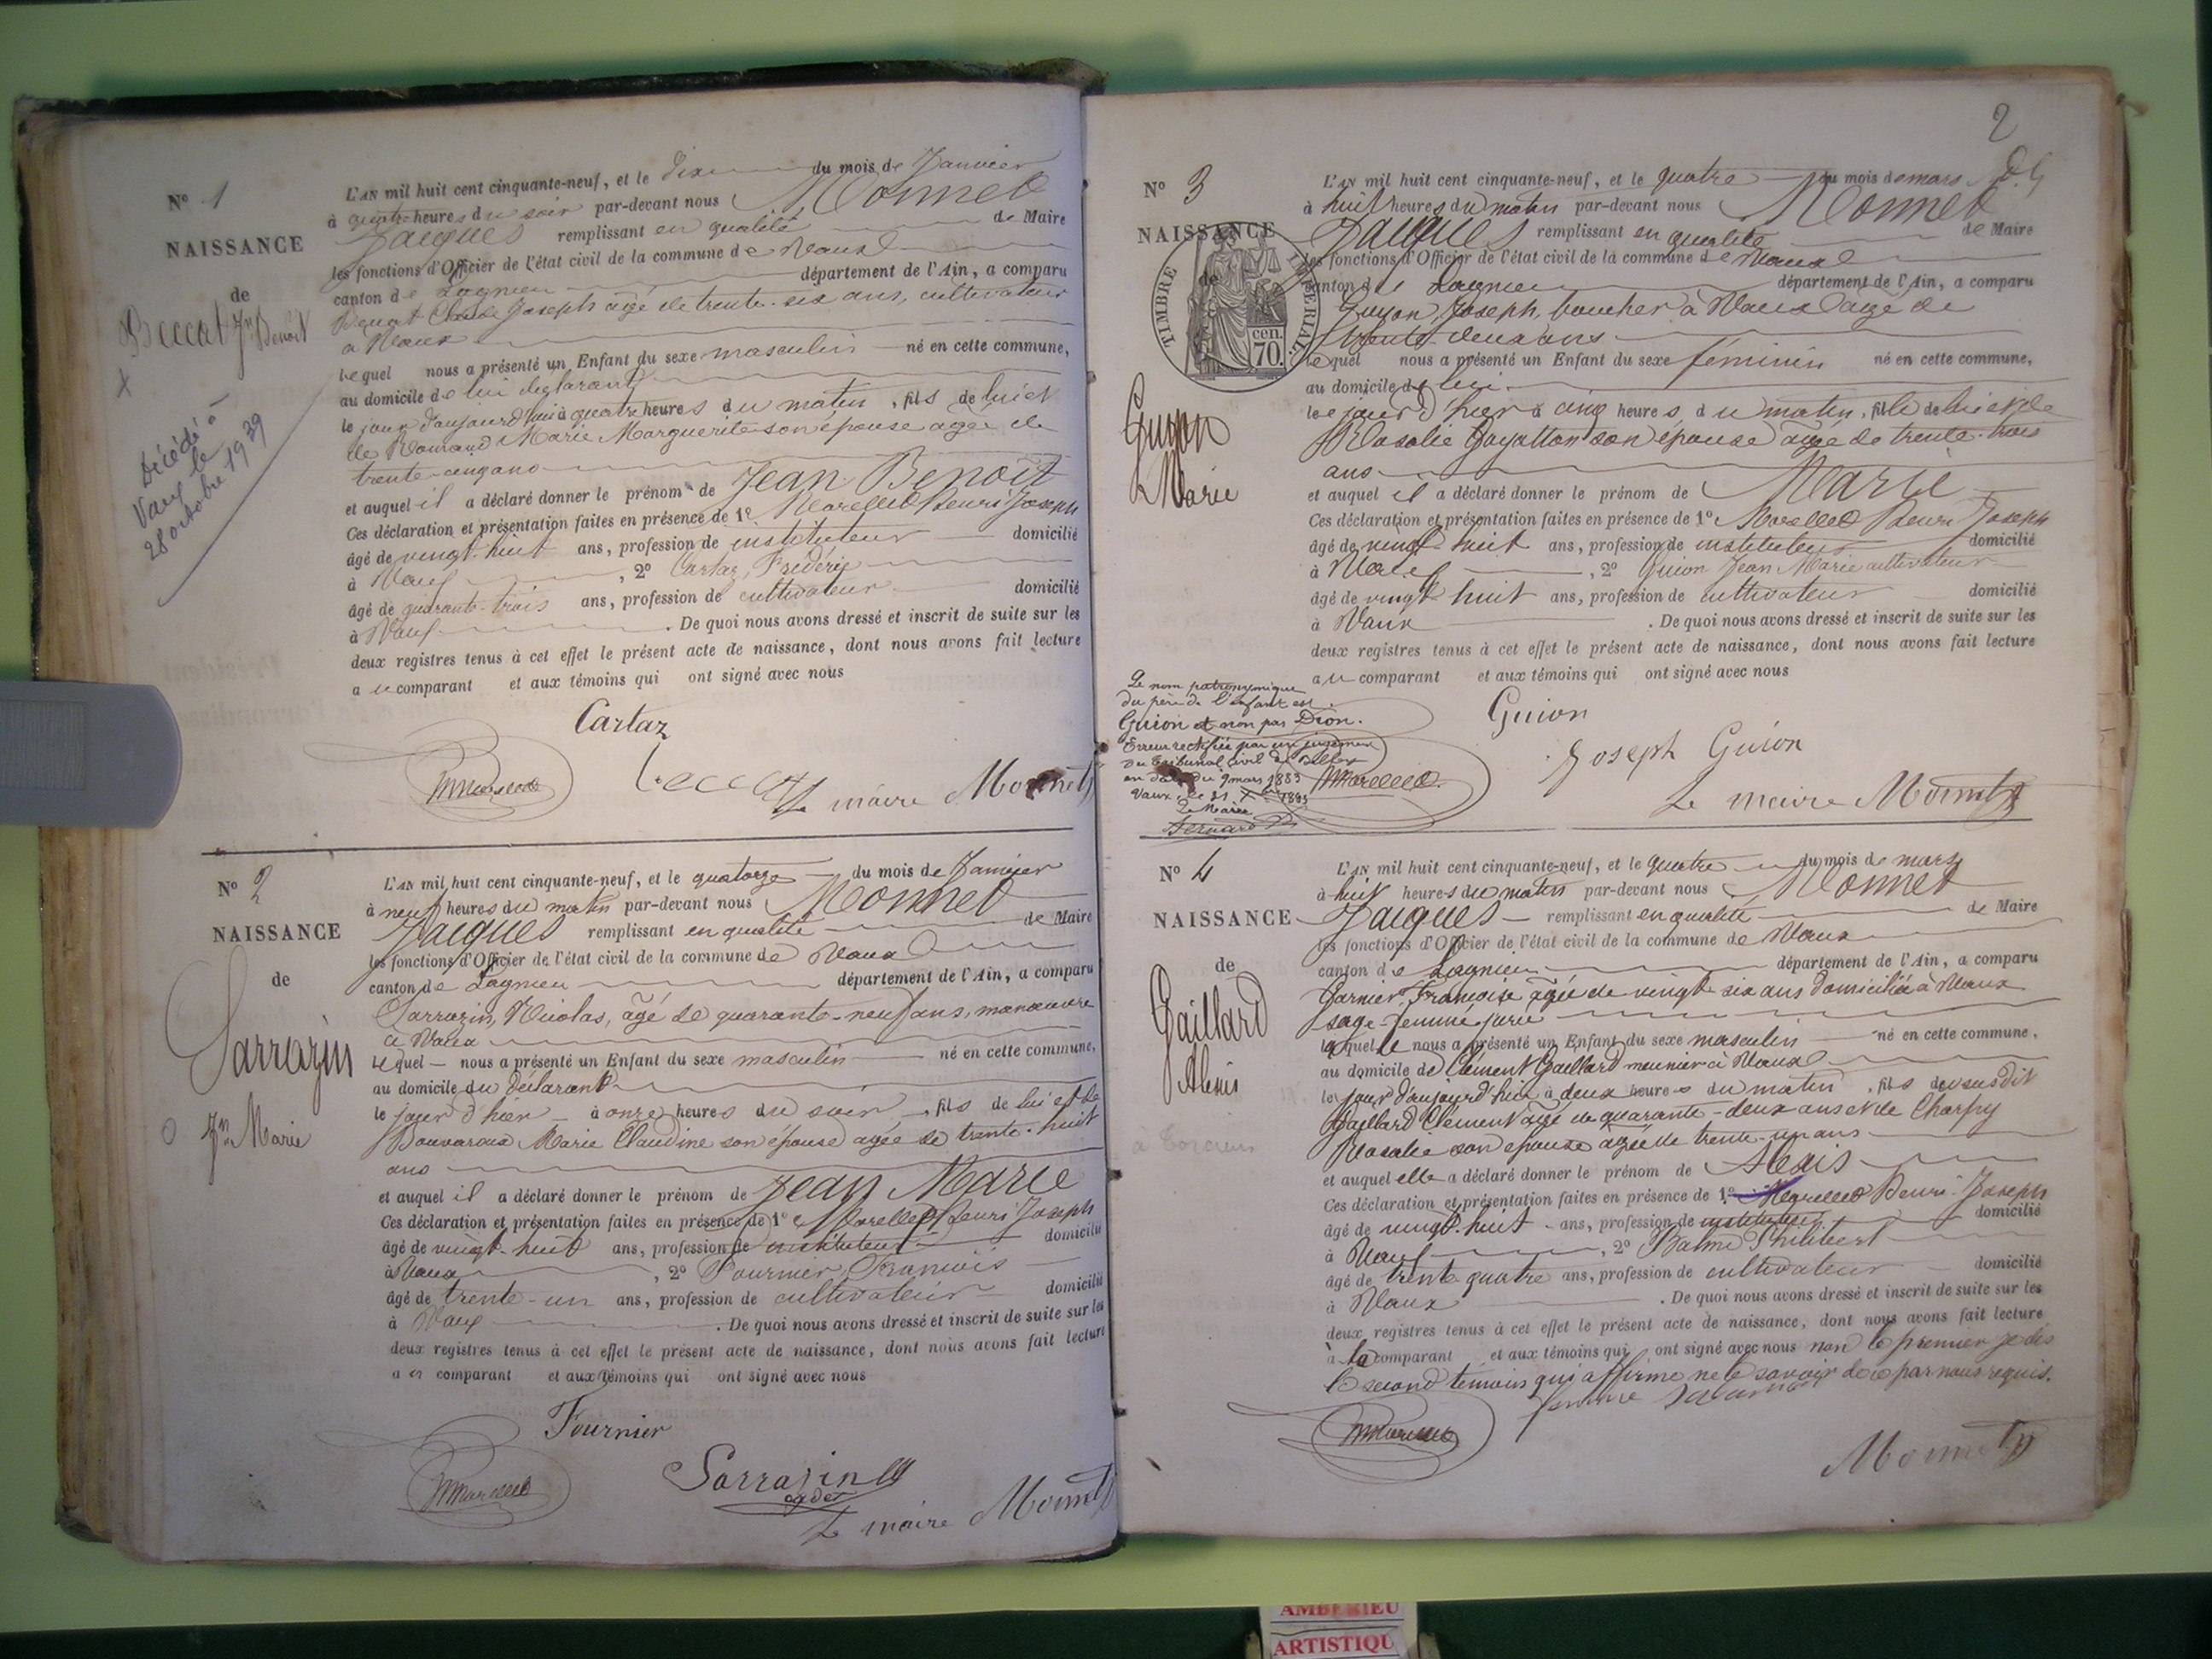 N° 1
NAISSANCE
de
Beccat Jn Benoit
Décédé à
Vaux le
28 octobre 1939
L'AN mil huit cent cinquante-neuf, et le dix du mois de Janvier
à quatre heures du soir par-devant nous Monnet
Jacques remplissant en qualité de Maire
les fonctions d'Officier de l'état civil de la commune de Vaux
canton de Lagnieu département de l'Ain, a comparu
Joseph agé de trente-six ans, cultivateur
à Vaux
lequel nous a présenté un Enfant du sexe masculin né en cette commune,
au domicile de lui déclarant
le jour d'aujourd'hui à quatre heures du matin, fils de lui et
de Marie Marguerite son épouse agée de
trente-cinq ans
et auquel il a déclaré donner le prénom de Jean Benoit
Ces déclaration et présentation faites en présence de 1° Morellet Henri Joseph
âgé de vingt-huit ans, profession de instituteur domicilié
à Vaux, 2° Cartaz, Frédéric
âgé de quarante-trois ans, profession de cultivateur domicilié
à Vaux. De quoi nous avons dressé et inscrit de suite sur les
deux registres tenus à cet effet le présent acte de naissance, dont nous avons fait lecture
au comparant et aux témoins qui ont signé avec nous
Cartaz
Beccat Le maire Monnet
N° 2
NAISSANCE
de
Sarrazin
Jn Marie
L'AN mil huit cent cinquante-neuf, et le quatorze du mois de Janvier
à neuf heures du matin par-devant nous Monnet
Jacques remplissant en qualité de Maire
les fonctions d'Officier de l'état civil de la commune de Vaux
canton de Lagnieu département de l'Ain, a comparu
Sarrazin, Nicolas, âgé de quarante-neuf ans, manœuvre
à Vaux
lequel nous a présenté un Enfant du sexe masculin né en cette commune,
au domicile du déclarant
le jour d'hier à onze heures du soir, fils de lui et de
Marie Claudine son épouse agée de trente-huit
ans
et auquel il a déclaré donner le prénom de Jean Marie
Ces déclaration et présentation faites en présence de 1° Morellet Henri Joseph
âgé de vingt-huit ans, profession de instituteur domicilié
à Vaux, 2° Fournier, François
âgé de trente-un ans, profession de cultivateur domicilié
à Vaux. De quoi nous avons dressé et inscrit de suite sur les
deux registres tenus à cet effet le présent acte de naissance, dont nous avons fait lecture
au comparant et aux témoins qui ont signé avec nous
Fournier
Morellet Sarrazin
cadet
Le maire Monnet
2
N° 3
NAISSANCE
de
TIMBRE IMPERIAL
70 cen.
Guyon
Marie
L'AN mil huit cent cinquante-neuf, et le quatre du mois de mars
à huit heures du matin par-devant nous Monnet
Jacques remplissant en qualité de Maire
les fonctions d'Officier de l'état civil de la commune de Vaux
canton de Lagnieu département de l'Ain, a comparu
Guyon Joseph, boucher à Vaux agé de
trente-deux ans
lequel nous a présenté un Enfant du sexe féminin né en cette commune,
au domicile de lui
le jour d'hier à cinq heures du matin, fille de lui et de
Rosalie son épouse âgée de trente-trois
ans
et auquel il a déclaré donner le prénom de Marie
Ces déclaration et présentation faites en présence de 1° Morellet Henri Joseph
âgé de vingt-huit ans, profession de instituteur domicilié
à Vaux, 2° Guion Jean Marie cultivateur
âgé de vingt-huit ans, profession de cultivateur domicilié
à Vaux. De quoi nous avons dressé et inscrit de suite sur les
deux registres tenus à cet effet le présent acte de naissance, dont nous avons fait lecture
au comparant et aux témoins qui ont signé avec nous
Le nom patronymique
du père de l'enfant est
Guion et non pas Dion.
Erreur rectifiée par un jugement
du tribunal civil de Belley
en date du 9 mars 1883
Vaux, le 31 Xbre 1883
Le Maire
Bernard
Guion
Joseph Guion
Morellet
Le maire Monnet
N° 4
NAISSANCE
de
Gaillard
Alexis
L'AN mil huit cent cinquante-neuf, et le quatre du mois de mars
à huit heures du matin par-devant nous Monnet
Jacques remplissant en qualité de Maire
les fonctions d'Officier de l'état civil de la commune de Vaux
canton de Lagnieu département de l'Ain, a comparu
Garnier Françoise âgée de vingt six ans domiciliée à Vaux
sage-femme jurée
laquelle nous a présenté un Enfant du sexe masculin né en cette commune,
au domicile de Clément Gaillard meunier à Vaux
le jour d'aujourd'hui à deux heures du matin, fils du susdit
Gaillard Clément âgé de quarante-deux ans et de Charpy
Rosalie son épouse agée de trente-un ans
et auquel elle a déclaré donner le prénom de Alexis
Ces déclaration et présentation faites en présence de 1° Morellet Henri Joseph
âgé de vingt-huit ans, profession de instituteur domicilié
à Vaux, 2° Balme Philibert
âgé de trente quatre ans, profession de cultivateur domicilié
à Vaux. De quoi nous avons dressé et inscrit de suite sur les
deux registres tenus à cet effet le présent acte de naissance, dont nous avons fait lecture
à la comparant et aux témoins qui ont signé avec nous non le premier je dis
le second témoin qui affirme ne le savoir de ce par nous requis.
femme
Morellet
Monnet
AMBERIEU
ARTISTIQU